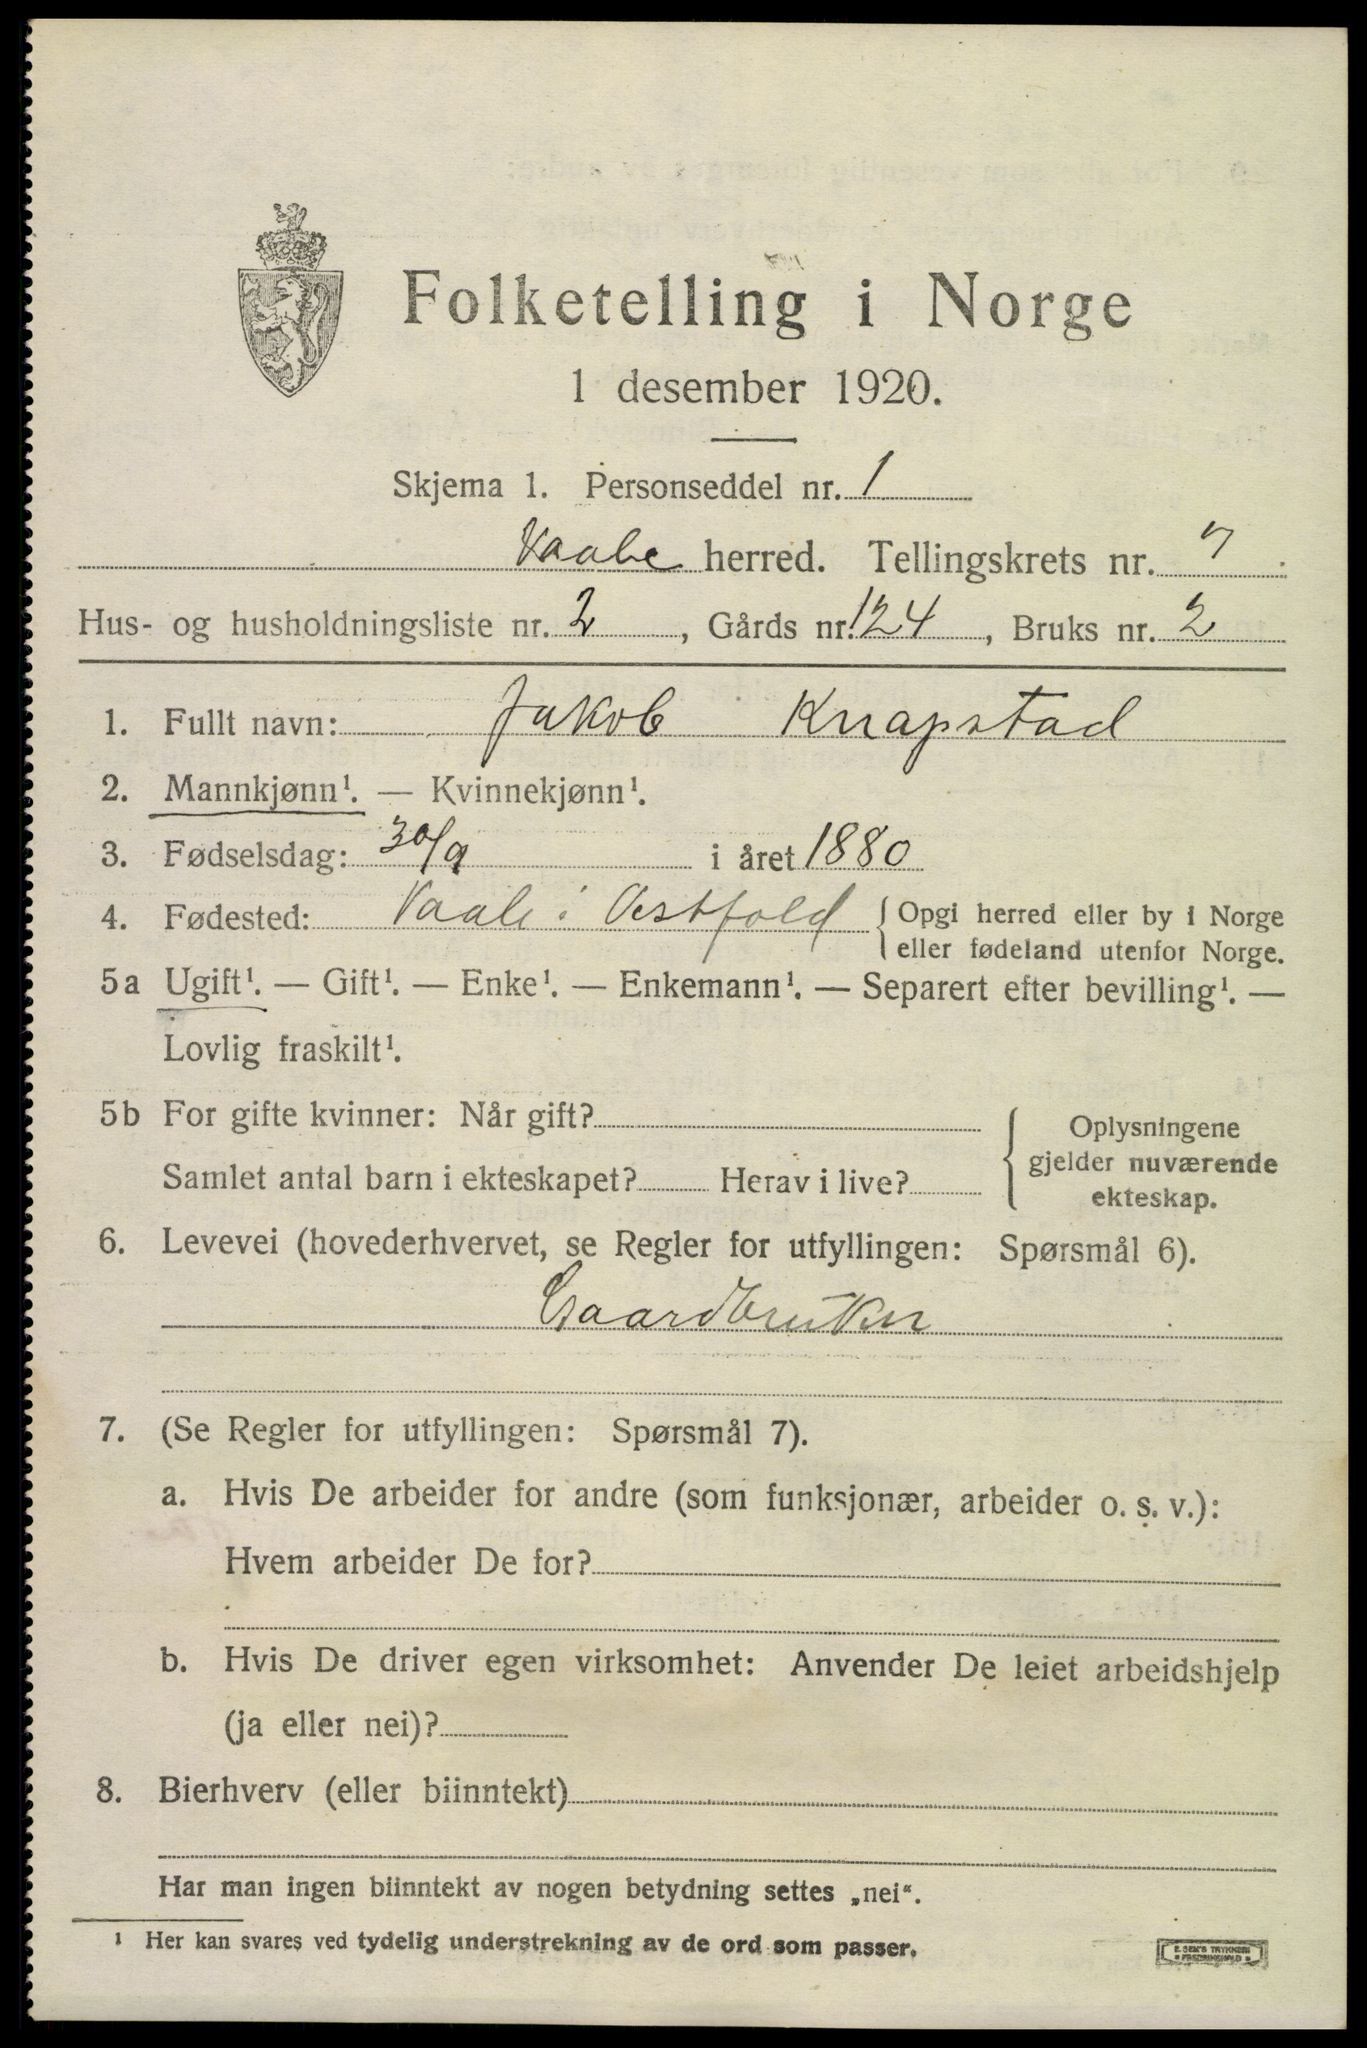 Folketelling i Norge
1 desember 1920.
Skjema 1. Personseddel nr. 1
Vaale herred. Tellingskrets nr. 7
Hus- og husholdningsliste nr. 2, Gårds nr. 124, Bruks nr. 2
1. Fullt navn: Jakob Knapstad
2. Mannkjønn¹. — Kvinnekjønn¹.
3. Fødselsdag: 30/9 i året 1880
4. Fødested: Vaale i Vestfold { Opgi herred eller by i Norge
eller fødeland utenfor Norge.
5a Ugift¹. — Gift¹. — Enke¹. — Enkemann¹. — Separert efter bevilling¹. —
Lovlig fraskilt¹.
5b For gifte kvinner: Når gift?
Samlet antal barn i ekteskapet? Herav i live?
{ Oplysningene
gjelder nuværende
ekteskap.
6. Levevei (hovederhvervet, se Regler for utfyllingen: Spørsmål 6).
Gaardbruker
7. (Se Regler for utfyllingen: Spørsmål 7).
a. Hvis De arbeider for andre (som funksjonær, arbeider o. s. v.):
Hvem arbeider De for?
b. Hvis De driver egen virksomhet: Anvender De leiet arbeidshjelp
(ja eller nei)?
8. Bierhverv (eller biinntekt)
Har man ingen biinntekt av nogen betydning settes „nei".
¹ Her kan svares ved tydelig understrekning av de ord som passer.
E. SEM'S TRYKKERI
FREDRIKSHALD